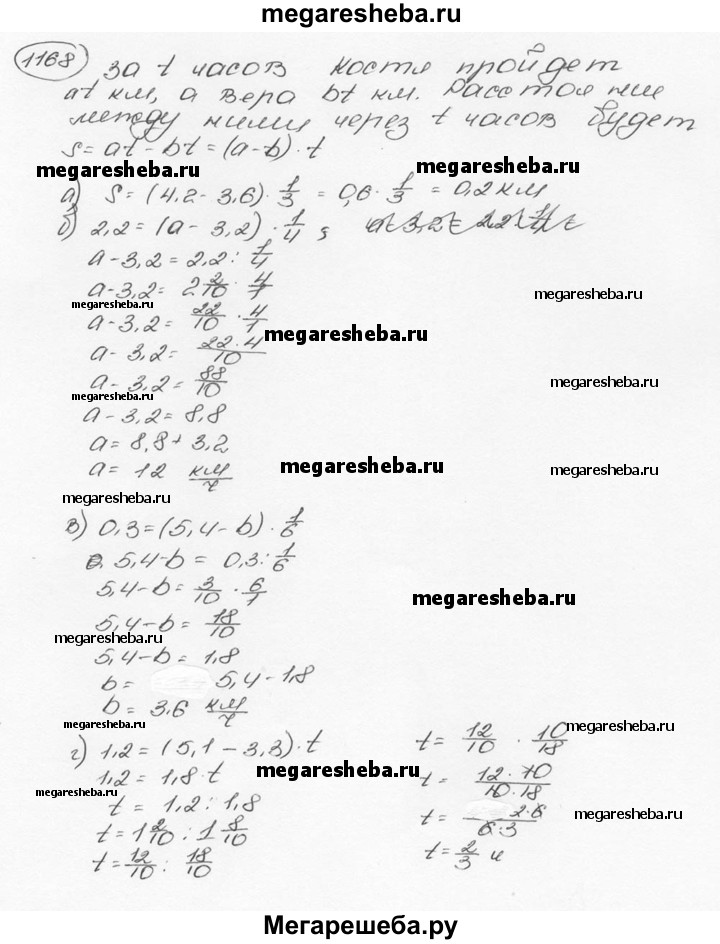 megaresheba.ru
1168 За t часов Костя пройдет
at км, а Вера bt км. Расстояние
между ними через t часов будет
S = at - bt = (a - b) · t
megaresheba.ru
megaresheba.ru
а) S = (4,2 - 3,6) · 1/3 = 0,6 · 1/3 = 0,2 км
б) 2,2 = (a - 3,2) · 1/4 ;
a - 3,2 = 2,2 : 1/4
a - 3,2 = 2 2/10 · 4/1
megaresheba.ru
megaresheba.ru
a - 3,2 = 22/10 · 4/1
megaresheba.ru
a - 3,2 = 22·4/10
a - 3,2 = 88/10
megaresheba.ru
a - 3,2 = 8,8
a = 8,8 + 3,2
a = 12 км/ч
megaresheba.ru
megaresheba.ru
megaresheba.ru
в) 0,3 = (5,4 - b) · 1/6
5,4 - b = 0,3 : 1/6
5,4 - b = 3/10 · 6/1
megaresheba.ru
5,4 - b = 18/10
megaresheba.ru
5,4 - b = 1,8
b = 5,4 - 1,8
b = 3,6 км/ч
megaresheba.ru
megaresheba.ru
г) 1,2 = (5,1 - 3,3) · t
1,2 = 1,8 · t
megaresheba.ru
megaresheba.ru
t = 1,2 : 1,8
t = 1 2/10 : 1 8/10
t = 12/10 : 18/10
t = 12/10 · 10/18
t = 12·10/10·18
t = 2·6/6·3
megaresheba.ru
t = 2/3 ч
Мегарешеба.ру